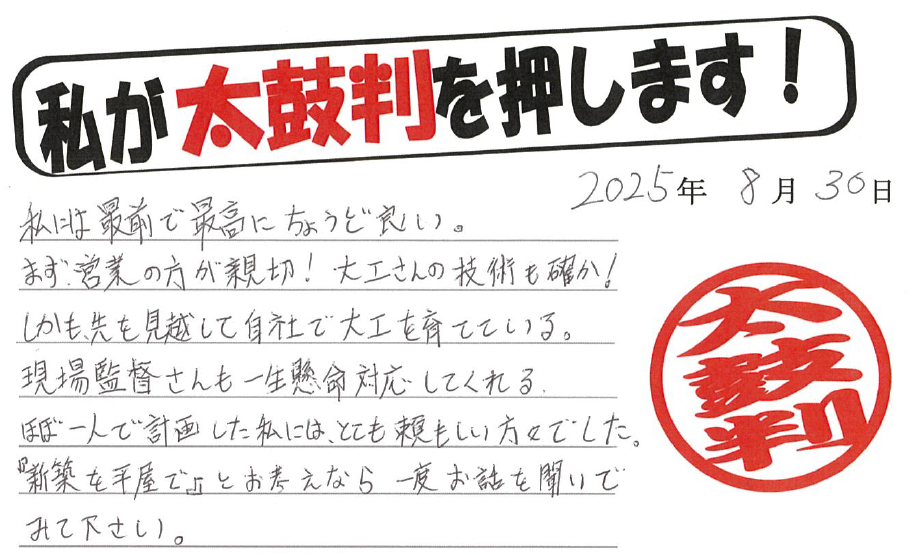 私が太鼓判を押します！
2025年 8月 30日
私には最前で最高にちょうど良い。
まず、営業の方が親切！大工さんの技術も確か！
しかも、先を見越して自社で大工を育てている。
現場監督さんも一生懸命対応してくれる、
ほぼ一人で計画した私には、とても頼もしい方々でした。
『新築を平屋で』とお考えなら一度お話を聞いで
みて下さい。
太鼓判